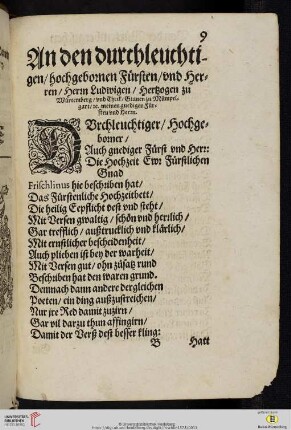 9
An den durchleuchti-
gen/ hochgebornen Fürsten/ vnd Her-
ren/ Herrn Ludwigen/ Hertzogen zu
Würtemberg/ vnd Theck/ Grauen zu Mümpel-
gart/ ꝛc. meinen gnedigen Für-
sten vnd Herrn.
DVrchleuchtiger/ Hochge-
borner/
Auch gnediger Fürst vnd Herr:
Die Hochzeit Ewr Fürstlichen
Gnad
Frischlinus hie beschriben hat/
Das Fürstenliche Hochzeitbett/
Die heilig Eepflicht vest vnd steht/
Mit Versen gwaltig/ schön vnd herrlich/
Gar trefflich/ außtrucklich vnd klärlich/
Mit ernstlicher bescheidenheit/
Auch plieben ist bey der warheit/
Mit Versen gut/ ohn züsatz rund
Beschriben hat den waren grund.
Demnach dann andere dergleichen
Poeten/ ein ding außzustreichen/
Nur jre Red damit zuzirn/
Gar vil darzu thun affingirn/
Damit der Verß dest besser kling:
B
Hatt
UNIVERSITÄTS-
BIBLIOTHEK
HEIDELBERG